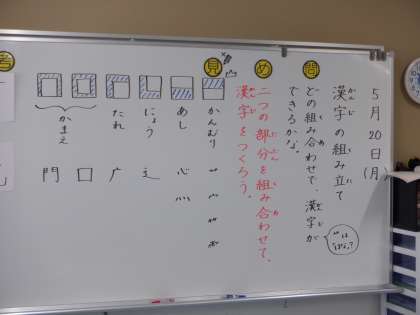 5月20日(月
漢字の組み立て
かんじ
く
た
問
どの組み合わせで、漢字が
できるかな。
め
二つの部分を組み合わせて、
漢字をつくろう。
見
かんむり
あし
心
灬
にょう
辶
たれ
广
かまえ
囗
門
考